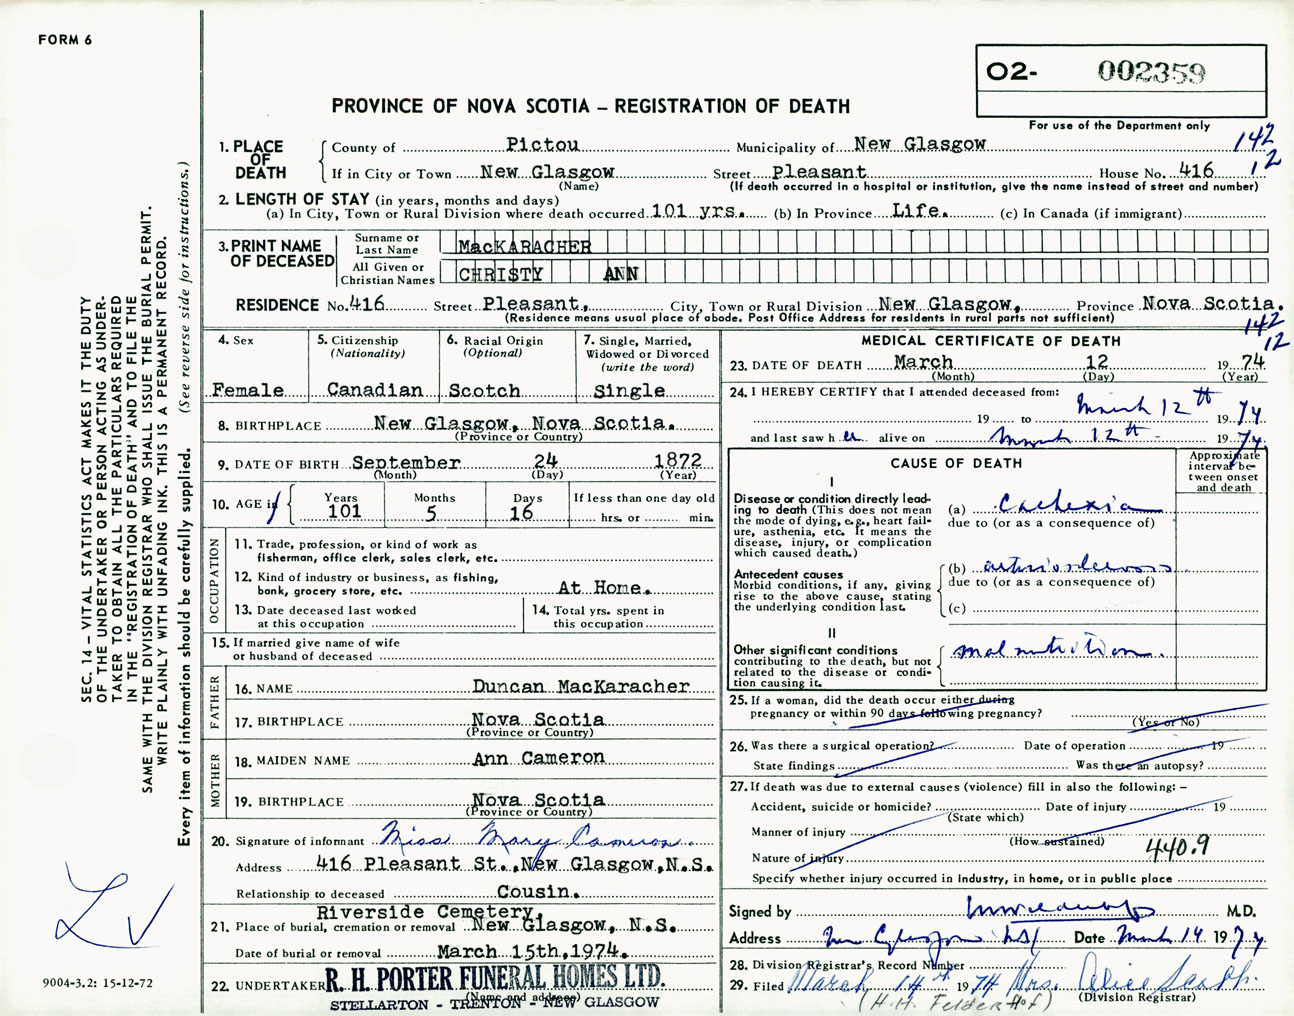 FORM 6
O2- 002359
PROVINCE OF NOVA SCOTIA – REGISTRATION OF DEATH
For use of the Department only
142
12
1. PLACE OF DEATH
County of Pictou Municipality of New Glasgow
If in City or Town New Glasgow Street Pleasant House No. 416
(Name) (If death occurred in a hospital or institution, give the name instead of street and number)
2. LENGTH OF STAY (in years, months and days)
(a) In City, Town or Rural Division where death occurred 101 yrs. (b) In Province Life. (c) In Canada (if immigrant)
3. PRINT NAME OF DECEASED
Surname or Last Name MacKARACHER
All Given or Christian Names CHRISTY ANN
RESIDENCE No. 416 Street Pleasant, City, Town or Rural Division New Glasgow, Province Nova Scotia.
(Residence means usual place of abode. Post Office Address for residents in rural parts not sufficient)
142
12
4. Sex
Female
5. Citizenship
(Nationality)
Canadian
6. Racial Origin
(Optional)
Scotch
7. Single, Married,
Widowed or Divorced
(write the word)
Single
8. BIRTHPLACE New Glasgow, Nova Scotia.
(Province or Country)
9. DATE OF BIRTH September 24 1872
(Month) (Day) (Year)
10. AGE in
Years 101
Months 5
Days 16
If less than one day old
hrs. or min.
OCCUPATION
11. Trade, profession, or kind of work as
fisherman, office clerk, sales clerk, etc.
12. Kind of industry or business, as fishing,
bank, grocery store, etc. At Home.
13. Date deceased last worked
at this occupation
14. Total yrs. spent in
this occupation
15. If married give name of wife
or husband of deceased
FATHER
16. NAME Duncan MacKaracher
17. BIRTHPLACE Nova Scotia
(Province or Country)
MOTHER
18. MAIDEN NAME Ann Cameron
19. BIRTHPLACE Nova Scotia
(Province or Country)
20. Signature of informant Miss Mary Cameron.
Address 416 Pleasant St., New Glasgow, N.S.
Relationship to deceased Cousin.
Riverside Cemetery,
21. Place of burial, cremation or removal New Glasgow, N.S.
Date of burial or removal March 15th, 1974.
22. UNDERTAKER R. H. PORTER FUNERAL HOMES LTD.
(Name and address)
STELLARTON - TRENTON - NEW GLASGOW
MEDICAL CERTIFICATE OF DEATH
23. DATE OF DEATH March 12 19 74
(Month) (Day) (Year)
24. I HEREBY CERTIFY that I attended deceased from:
19 to March 12th 19 74
and last saw h er alive on March 12th - 19 74.
CAUSE OF DEATH
Approximate interval between onset and death
I
Disease or condition directly leading to death (This does not mean the mode of dying, e.g., heart failure, asthenia, etc. It means the disease, injury, or complication which caused death.)
(a) Cachexia
due to (or as a consequence of)
Antecedent causes
Morbid conditions, if any, giving rise to the above cause, stating the underlying condition last.
(b) arteriosclerosis
due to (or as a consequence of)
(c)
II
Other significant conditions
contributing to the death, but not related to the disease or condition causing it.
malnutrition.
25. If a woman, did the death occur either during
pregnancy or within 90 days following pregnancy?
(Yes or No)
26. Was there a surgical operation? Date of operation 19
State findings Was there an autopsy?
27. If death was due to external causes (violence) fill in also the following: –
Accident, suicide or homicide? Date of injury 19
(State which)
Manner of injury
(How sustained)
440.9
Nature of injury
Specify whether injury occurred in industry, in home, or in public place
Signed by M.D.
Address New Glasgow NS Date March 14 1974
28. Division Registrar's Record Number
29. Filed March 14th 1974 Mrs. Alice Scott.
(H.H. Felderhof) (Division Registrar)
SEC. 14 – VITAL STATISTICS ACT MAKES IT THE DUTY
OF THE UNDERTAKER OR PERSON ACTING AS UNDER-
TAKER TO OBTAIN ALL THE PARTICULARS REQUIRED
IN THE "REGISTRATION OF DEATH" AND TO FILE THE
SAME WITH THE DIVISION REGISTRAR WHO SHALL ISSUE THE BURIAL PERMIT.
WRITE PLAINLY WITH UNFADING INK. THIS IS A PERMANENT RECORD.
Every item of information should be carefully supplied. (See reverse side for instructions.)
9004-3.2: 15-12-72